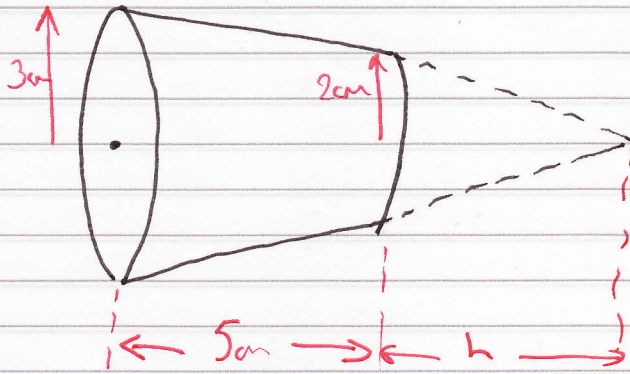 3cm
2cm
5cm
h